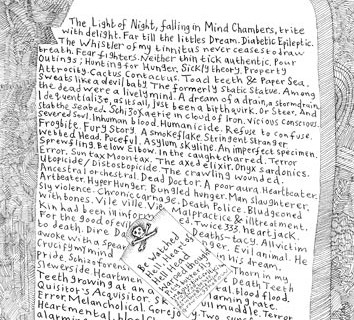 The Light of Night, falling in Mind Chambers, trite
with delight. Far till the littles Dream. Diabetic Epileptic.
The Whistler of my tinnitus never ceases to draw
breath. Fear fighters. Neither thin tick authentic. Pour
Outings; Hunting for Hunger. Sickly theory, Property
Atrocity. Cactus, Contact us. Toad teeth & Paper Sea.
Sweats like a devil bat! The formerly static Statue. Among
the dead were a lively mind. A dream of a drain, a stormdrain.
I de qventialize, as it's all, just been a birth quirk, or Steer, And
stat the Seabed. Schizoxaerie in cloud of Iron. Vicious Conscious.
Severed Soul. Inhuman blood. Humanicide. Refuse to confuse.
Frogbite. Fury Story. A smokeflake. Stringent Stranger
Wetted Head. Puceful. Asylum skyline. An imperfect specimen.
Sprewfling. Below Elbow in the caught charred. Terror
Error. Sun tax Moon tax. The axed elixir. Onyx sardonics.
Utopicide / Distostopicide. The crawling wounded.
Ancestral orchestral. Dead Doctor. A poor aura. Heartbeater.
Artbeater. Hyper Hunger. Bungled hunger. Man slaughterer.
Sly violence. Chronic carnage. Death Police. Bludgeoned
with bones. Vile Ville. Vi Malpractice & illtreatment.
Kin had been in inform Twice 333. Heartjack
For the good of evil Deaths-tacy. Allvictim
to death. Dire Da nger. Evil animal. He
awoke with a spea his dream.
Crucify my mind Thorn in my
Pride. Schizoforens Death Teeth
Slewerside Heartmen tal blood flood.
Teeth growing at an a larming rate.
Quisitor's Acquisitor. Sk ull muddle. Terror
Error. Melancholical. Gorejo
Heartmental. blood
alarming
Be Watched
No Heart of
Head